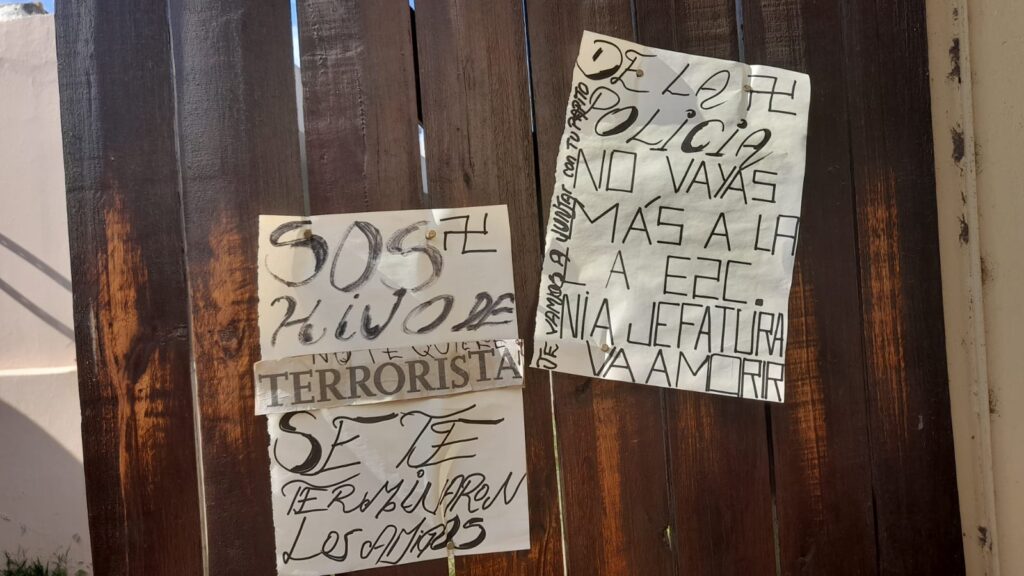 SOS
HIJO DE
NO TE QUIERE
TERRORISTA
SE TE
TERMINARON
LOS AMIGOS
DE LA
POLICIA
NO VAYAS
MÁS A LA
A E2C.
NI A JEFATURA
VA A MORIR
TE VAMOS A JUNTAR CON TU PADRE